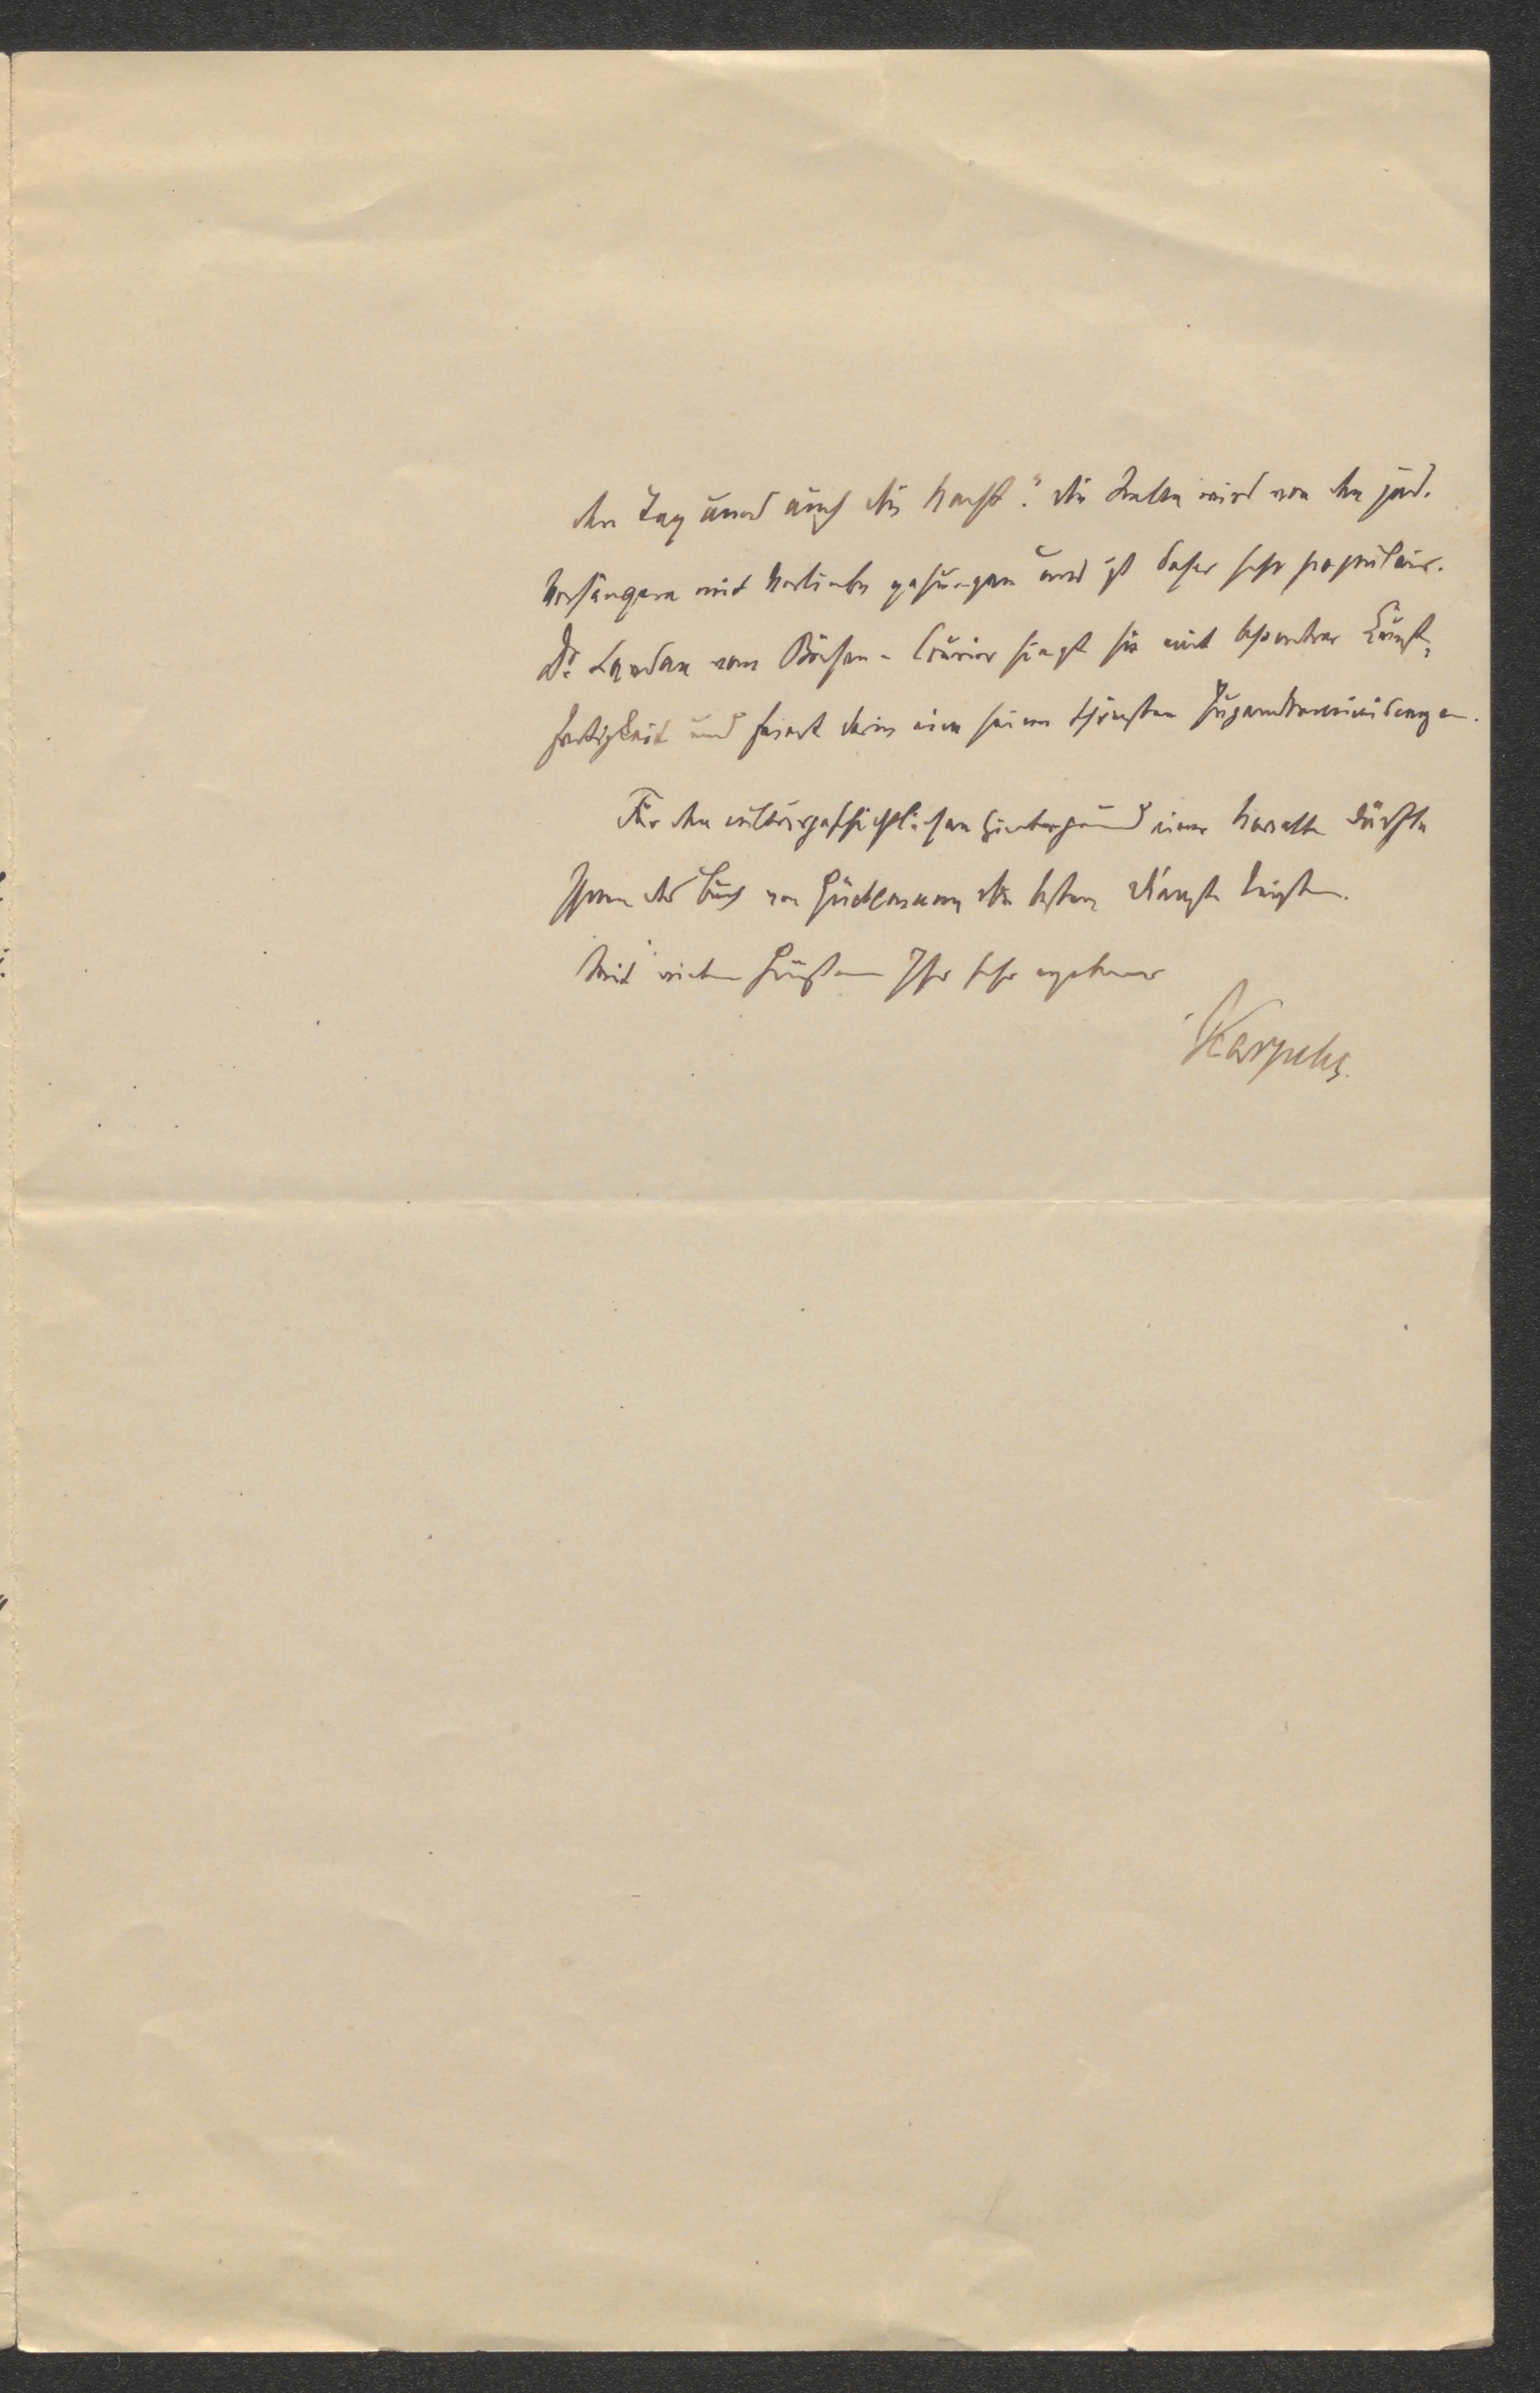 den Tag und auch die Nacht". Die Stelle wird von den jüd.
Vorsängern mit Vorliebe gesungen und ist daher sehr populair.
Dr. Landau vom Börsen-Courier singt sie mit besondrer Kunst-
fertigkeit und feiert darin eine seiner schönsten Jugenderinnerungen.
Für den culturgeschichtlichen Hintergrund einer Novelle dürfte
Ihnen das Buch von Güdemann die besten Dienste leisten.
Mit vielen Grüßen Ihr sehr ergebener
Karpeles.